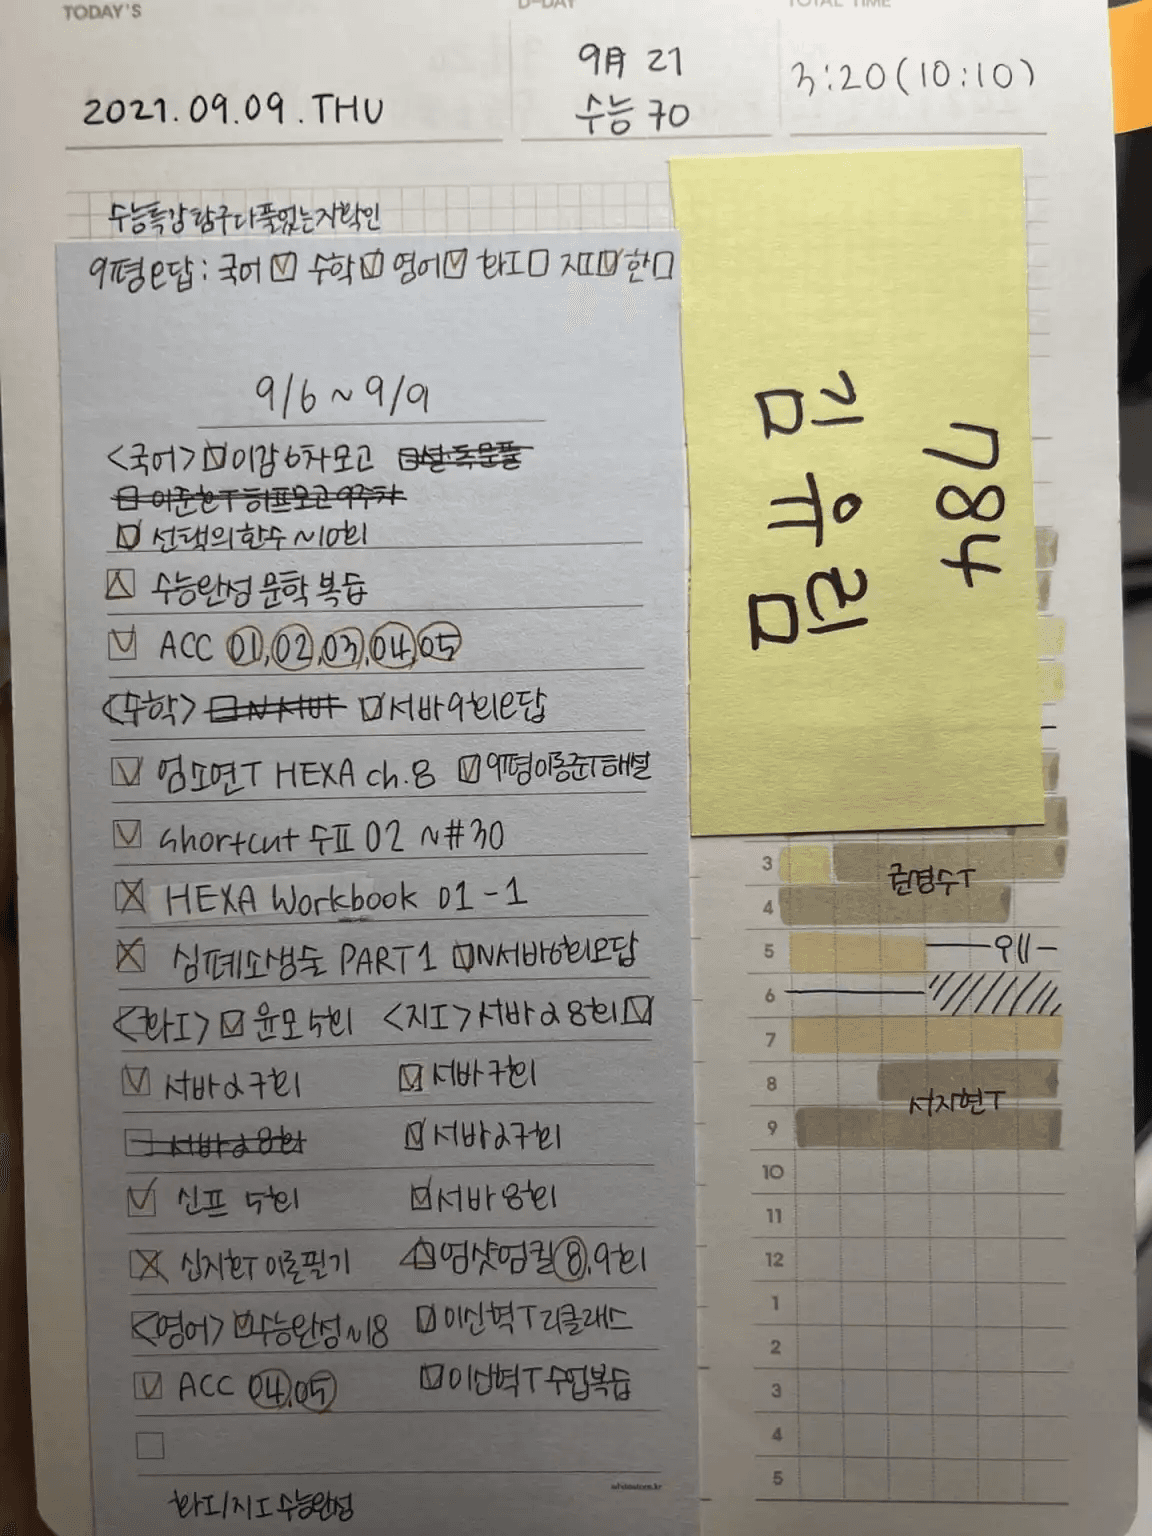 TODAY'S
D-DAY
TOTAL TIME
2021.09.09.THU
9月 21
수능 70
3:20(10:10)
수능특강 탐구 다 풀었는지 확인
9평 오답: 국어 수학 영어 화I 지I 한
784
김유림
9/6 ~ 9/9
<국어> 이감 6차 모고
선택의 한수 ~10회
수능완성 문학 복습
ACC 01, 02, 03, 04, 05
<수학> 서바 9회 오답
엄소연T HEXA ch.8 9평 이동준T 해설
shortcut 수II 02 ~#30
HEXA Workbook 01-1
심폐소생술 PART 1 N서바 6회 오답
<화I> 윤모 5회 <지I> 서바α 8회
서바α 7회 서바 7회
서바α 8회 서바α 7회
신프 5회 서바 8회
신지현T 이론필기 엄샷엄킬 8, 9회
<영어> 수능완성 ~18 이신혁T 리클래스
ACC 04, 05 이신혁T 수업복습
화I/지I 수능완성
3
4
5 911
6
7
8 서지현T
9
10
11
12
1
2
3
4
5